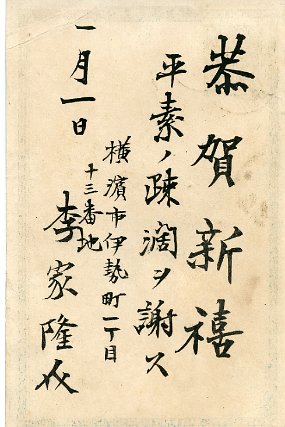 恭賀新禧
平素ノ疎濶ヲ謝ス
横濱市伊勢町一丁目
十三番地
李家隆介
一月一日